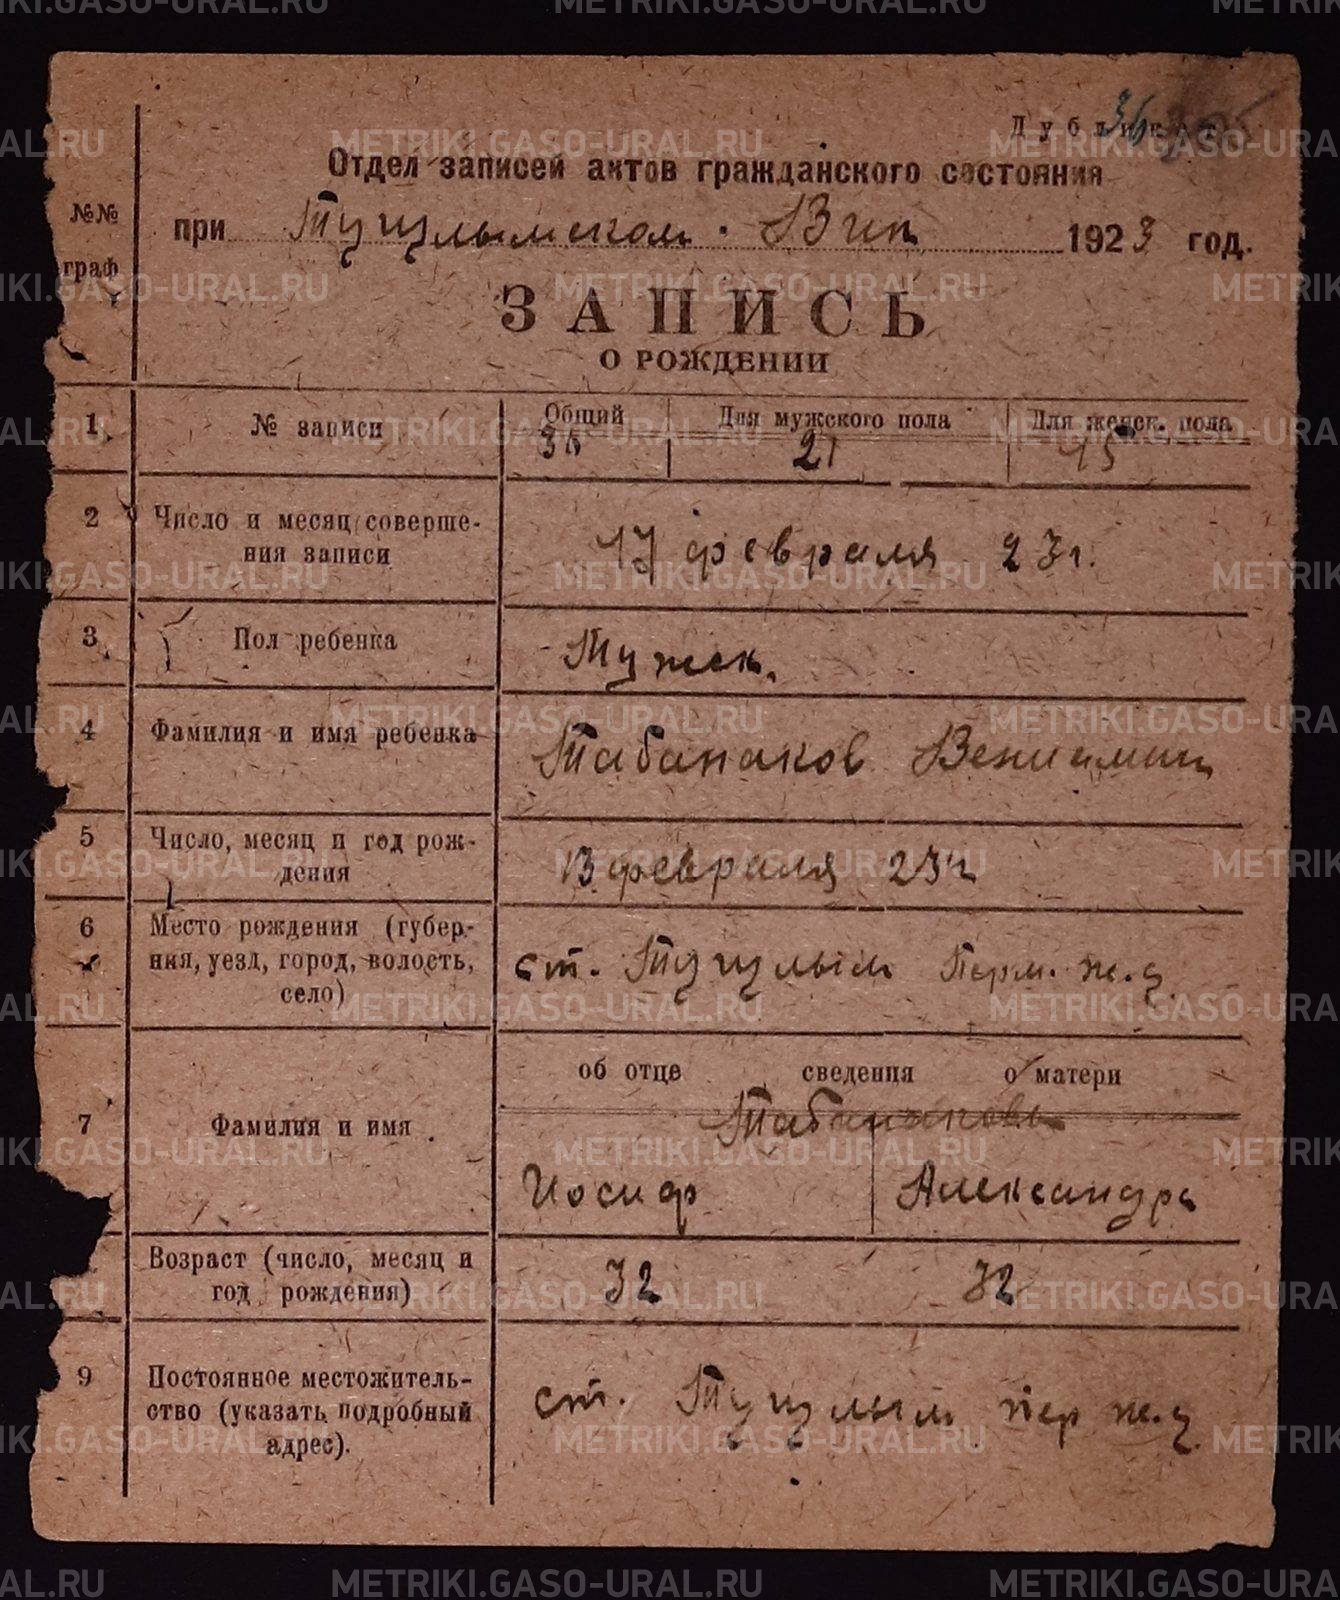 Дубликат
Отдел записей актов гражданского состояния
№№ граф
при Тугулымском Вик 1923 год.
ЗАПИСЬ
О РОЖДЕНИИ
1 № записи Общий Для мужского пола Для женск. пола
36 21 15
2 Число и месяц соверше-
ния записи
17 февраля 23г.
3 Пол ребенка
Мужск.
4 Фамилия и имя ребенка
Табанаков Вениамин
5 Число, месяц и год рож-
дения
13 февраля 23г
6 Место рождения (губер-
ния, уезд, город, волость,
село)
ст. Тугулым Перм. ж.д
об отце сведения о матери
7 Фамилия и имя
Табанаковы
Иосиф Александра
Возраст (число, месяц и
год рождения)
32 32
9 Постоянное местожитель-
ство (указать подробный
адрес).
ст. Тугулым пер ж.д
METRIKI.GASO-URAL.RU